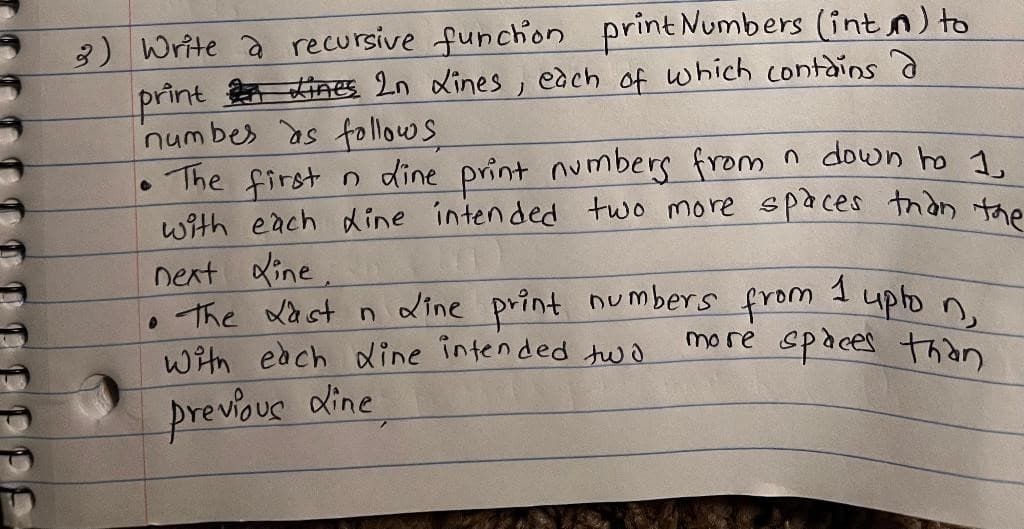 3) Write a recursive function printNumbers (int n) to
print 2n lines 2n lines, each of which contains a
number as follows
• The first n line print numbers from n down to 1,
with each line intended two more spaces than the
next line.
• The last n line print numbers from 1 upto n,
with each line intended two more spaces than
previous line